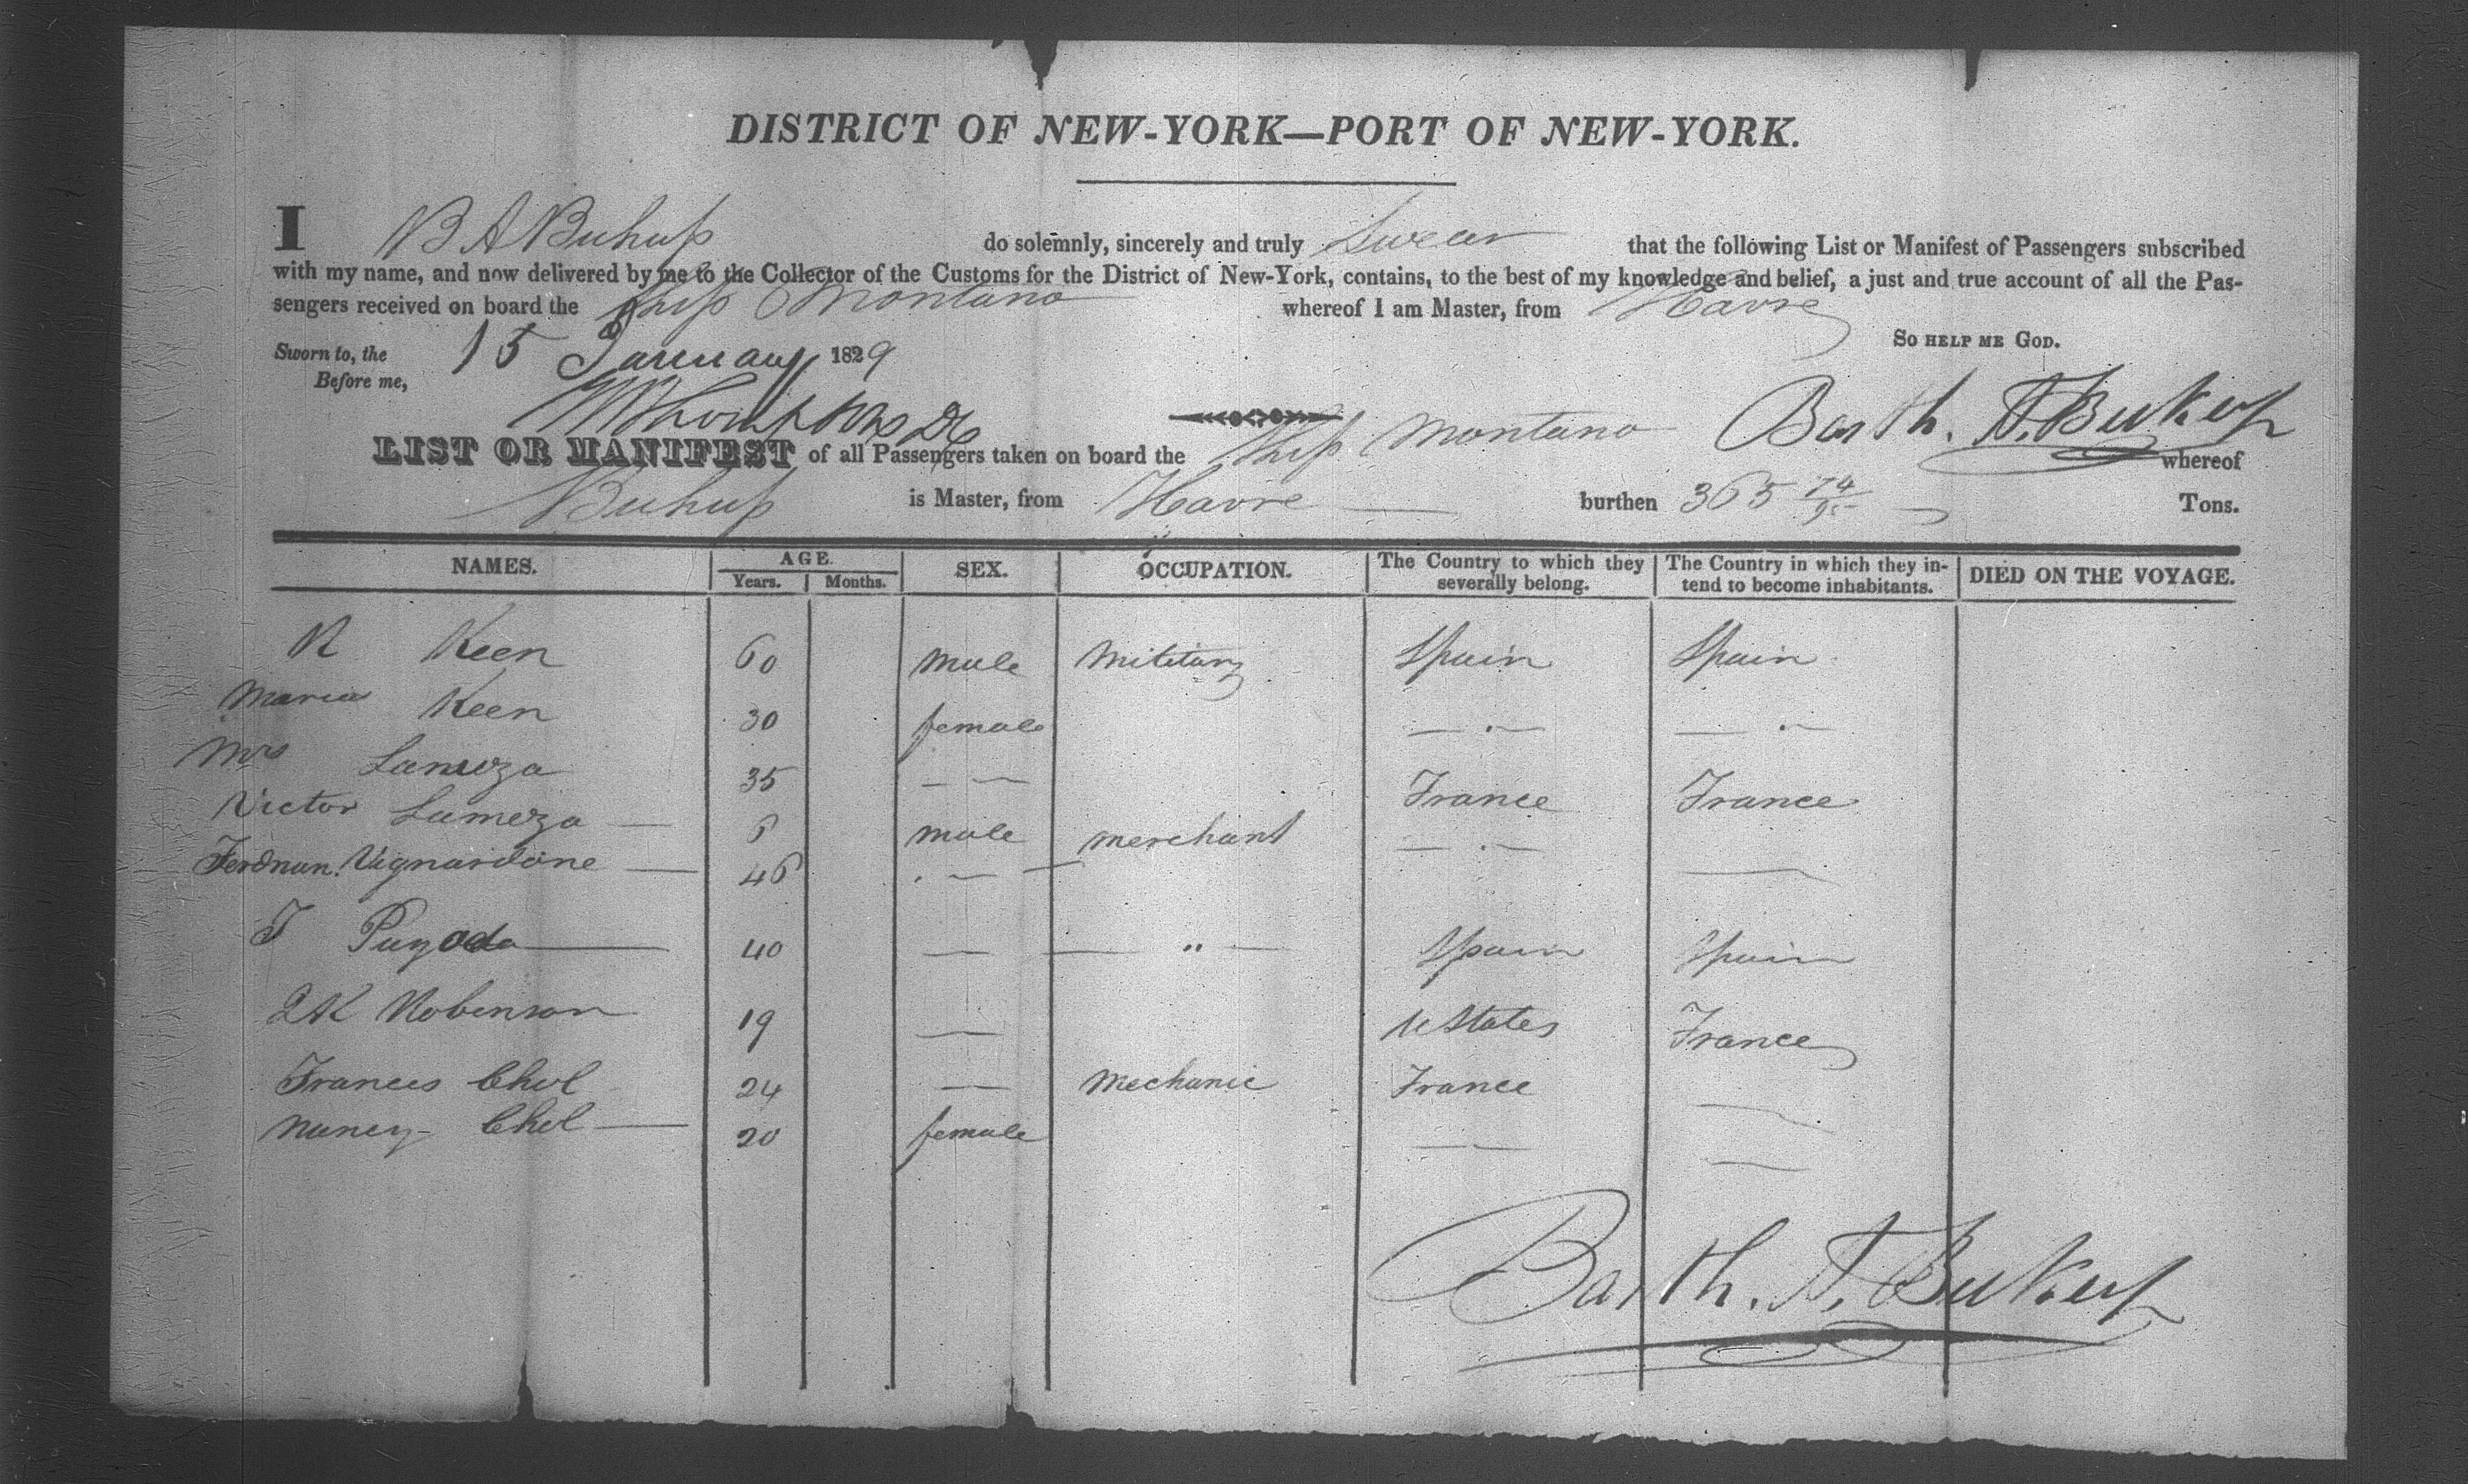 DISTRICT OF NEW-YORK—PORT OF NEW-YORK.
I B A Buhup do solemnly, sincerely and truly Swear that the following List or Manifest of Passengers subscribed
with my name, and now delivered by me to the Collector of the Customs for the District of New-York, contains, to the best of my knowledge and belief, a just and true account of all the Pas-
sengers received on board the Ship Montano whereof I am Master, from Havre
So HELP ME GOD.
Sworn to, the 15 January 1829
Before me,
Barth. A. Bukup
LIST OR MANIFEST of all Passengers taken on board the Ship Montano whereof
Buhup is Master, from Havre burthen 365 74/95 Tons.
NAMES. AGE. SEX. OCCUPATION. The Country to which they severally belong. The Country in which they in-tend to become inhabitants. DIED ON THE VOYAGE.
Years. Months.
R Keen 60 male Military Spain Spain
Maria Keen 30 female — . — — . —
Mrs Lameza 35 — — France France
Victor Lameza — 6 male merchant — . —
Ferdnan. Vignardone — 46 . — —
T Puyoda — 40 — — " — Spain Spain
Robinson 19 — U States France
Frances Chol 24 — Mechanic France —
Nancy Chol — 20 female — —
Barth. A. Bukup